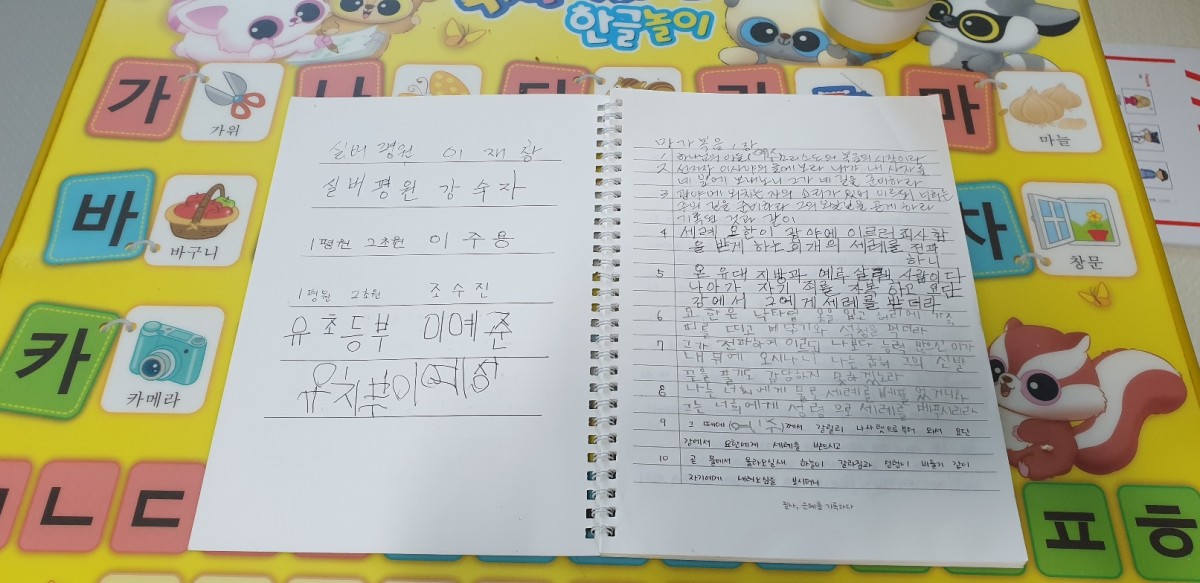 한글놀이
가
마
가위
마늘
바
차
바구니
창문
카
카메라
ㄴ ㄷ
ㅍ ㅎ
실버평원 이재창
실버평원 강수자
1평원 2초원 이주용
1평원 2초원 조수진
유초등부 이예준
유치부 이예송
마가복음 1장
1 하나님의 아들 예수 그리스도의 복음의 시작이라
2 선지자 이사야의 글에 보라 내가 내 사자를
네 앞에 보내노니 그가 네 길을 준비하리라
3 광야에 외치는 자의 소리가 있어 이르되 너희는
주의 길을 준비하라 그의 오실 길을 곧게 하라
기록된 것과 같이
4 세례 요한이 광야에 이르러 죄 사함
을 받게 하는 회개의 세례를 전파
하니
5 온 유대 지방과 예루살렘 사람이 다
나아가 자기 죄를 자복하고 요단
강에서 그에게 세례를 받더라
6 요한은 낙타털 옷을 입고 허리에 가죽
띠를 띠고 메뚜기와 석청을 먹더라
7 그가 전파하여 이르되 나보다 능력 많으신 이가
내 뒤에 오시나니 나는 굽혀 그의 신발
끈을 풀기도 감당하지 못하겠노라
8 나는 너희에게 물로 세례를 베풀었거니와
그는 너희에게 성령으로 세례를 베푸시리라
9 그 때에 (예수)께서 갈릴리 나사렛으로부터 와서 요단
강에서 요한에게 세례를 받으시고
10 곧 물에서 올라오실새 하늘이 갈라짐과 성령이 비둘기 같이
자기에게 내려오심을 보시더니
은혜를 기록하다